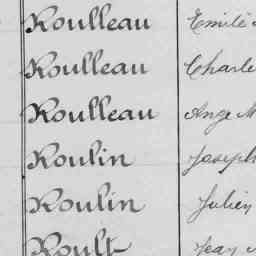 Roulleau Emile
Roulleau Charle
Roulleau Ange M
Roulin Joseph
Roulin Julien
Roult Jean